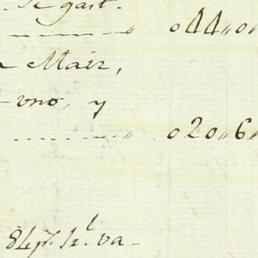 Se gast.
044,,0
Maiz,
uno, y
020,,6
847. h.l va-